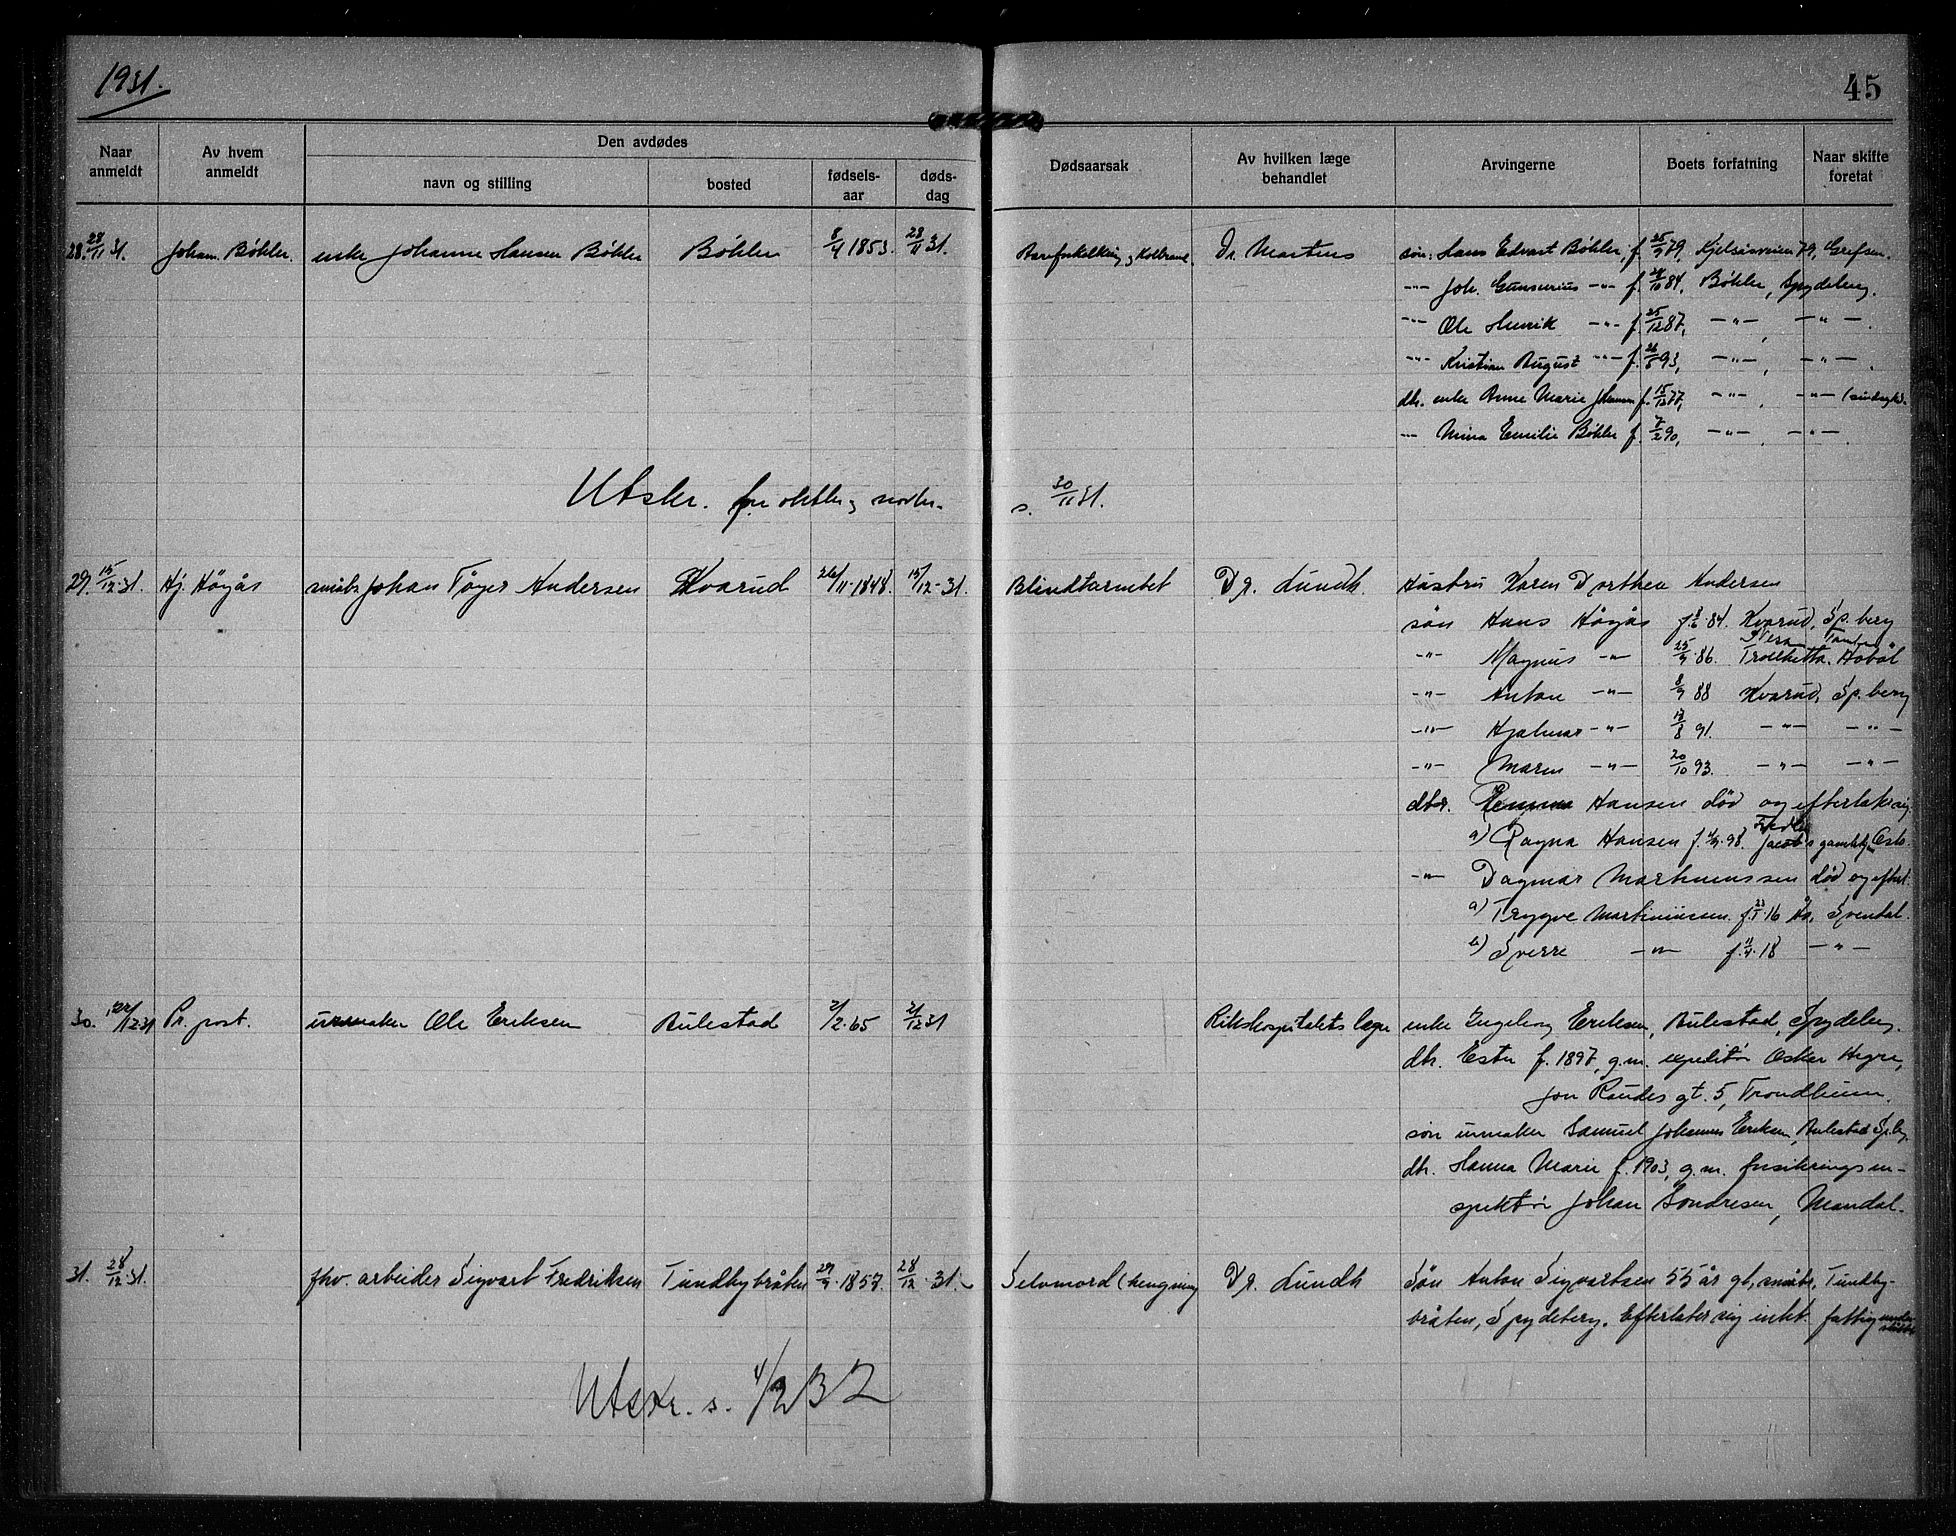 1931.
45
Naar anmeldt
Av hvem anmeldt
Den avdødes
navn og stilling
bosted
fødsels-aar
døds-dag
Dødsaarsak
Av hvilken læge behandlet
Arvingerne
Boets forfatning
Naar skifte foretat
28. 28/11 31. Johan. Bøhler. enke Johanne Hansen Bøhler Bøhler 8/4 1853. 28/11 31. Dr. Martens søn: Hans Edvart Bøhler, f. 25/9 79, Kjelsåsveien 79, Grefsen.
-"- Joh. -"- f. 84, Bøhler, Spydeberg.
-"- Ole Henrik -"- f. 25/12 87, -"-, -"-.
-"- Kristian August -"- f. 93, -"-, -"-.
dtr. enke Anne Marie Johansen f. 15/12 77, -"-, -"-
-"- Mina Emilie Bøhler f. 7/2 90, -"-, -"-.
Utskr. for oktbr. og novbr. s. 30/11 31.
29. 15/12 31. Hj. Högås småbr. Johan Töger Andersen Kvarud 26/11-1848. 15/12-31. Blindtarmbet Dr. Lundh. Hustru Karen Dorthea Andersen
søn Hans Högås f. 84. Kvarud, Sp.berg
-"- Magnus -"- 25/4 86. Trolldetta. Hobøl
-"- Anton -"- 8/9 88 Kvarud, Sp.berg
-"- Hjalmar -"- 91. -"- -"-
-"- Maren -"- 20/10 93. -"- -"-
dtr. Hansen død og efterlat sig
a) Ragna Hansen f. 98. Jacobs gamleby Oslo.
-"- Dagmar Martinussen død og efterl.
a) Trygve Martiniussen. f. 16 Ås, Svendal.
b) Sverre -"- f. 11/4 18 -"-
30. 22/12 31 Pr. post. urmaker Ole Eriksen Aulestad 2/2-65 31 Rikshospitalets læger enke Engeborg Eriksen, Aulestad, Spydeberg.
dtr. Ester f. 1897, g.m. expeditør Oskar Hegre,
Jon Raudes gt. 5, Trondheim.
søn urmaker Samuel Johannes Eriksen, Aulestad Sp.bg.
dtr. Hanna Marie f. 1903, g.m. forsikringsin-
spektør Johan Sondresen, Mandal.
31. 28/12-31. fhv. arbeider Sigvart Fredriksen Tundbybråten 29/9-1857. 28/12-31. Selvmord (hengning Dr. Lundh Søn Anton Sigvartsen 55 år gl, småbr, Tundby-
bråten, Spydeberg. Efterlater sig intet. fattigunderstøttet
Utskr. s. 4/2 32